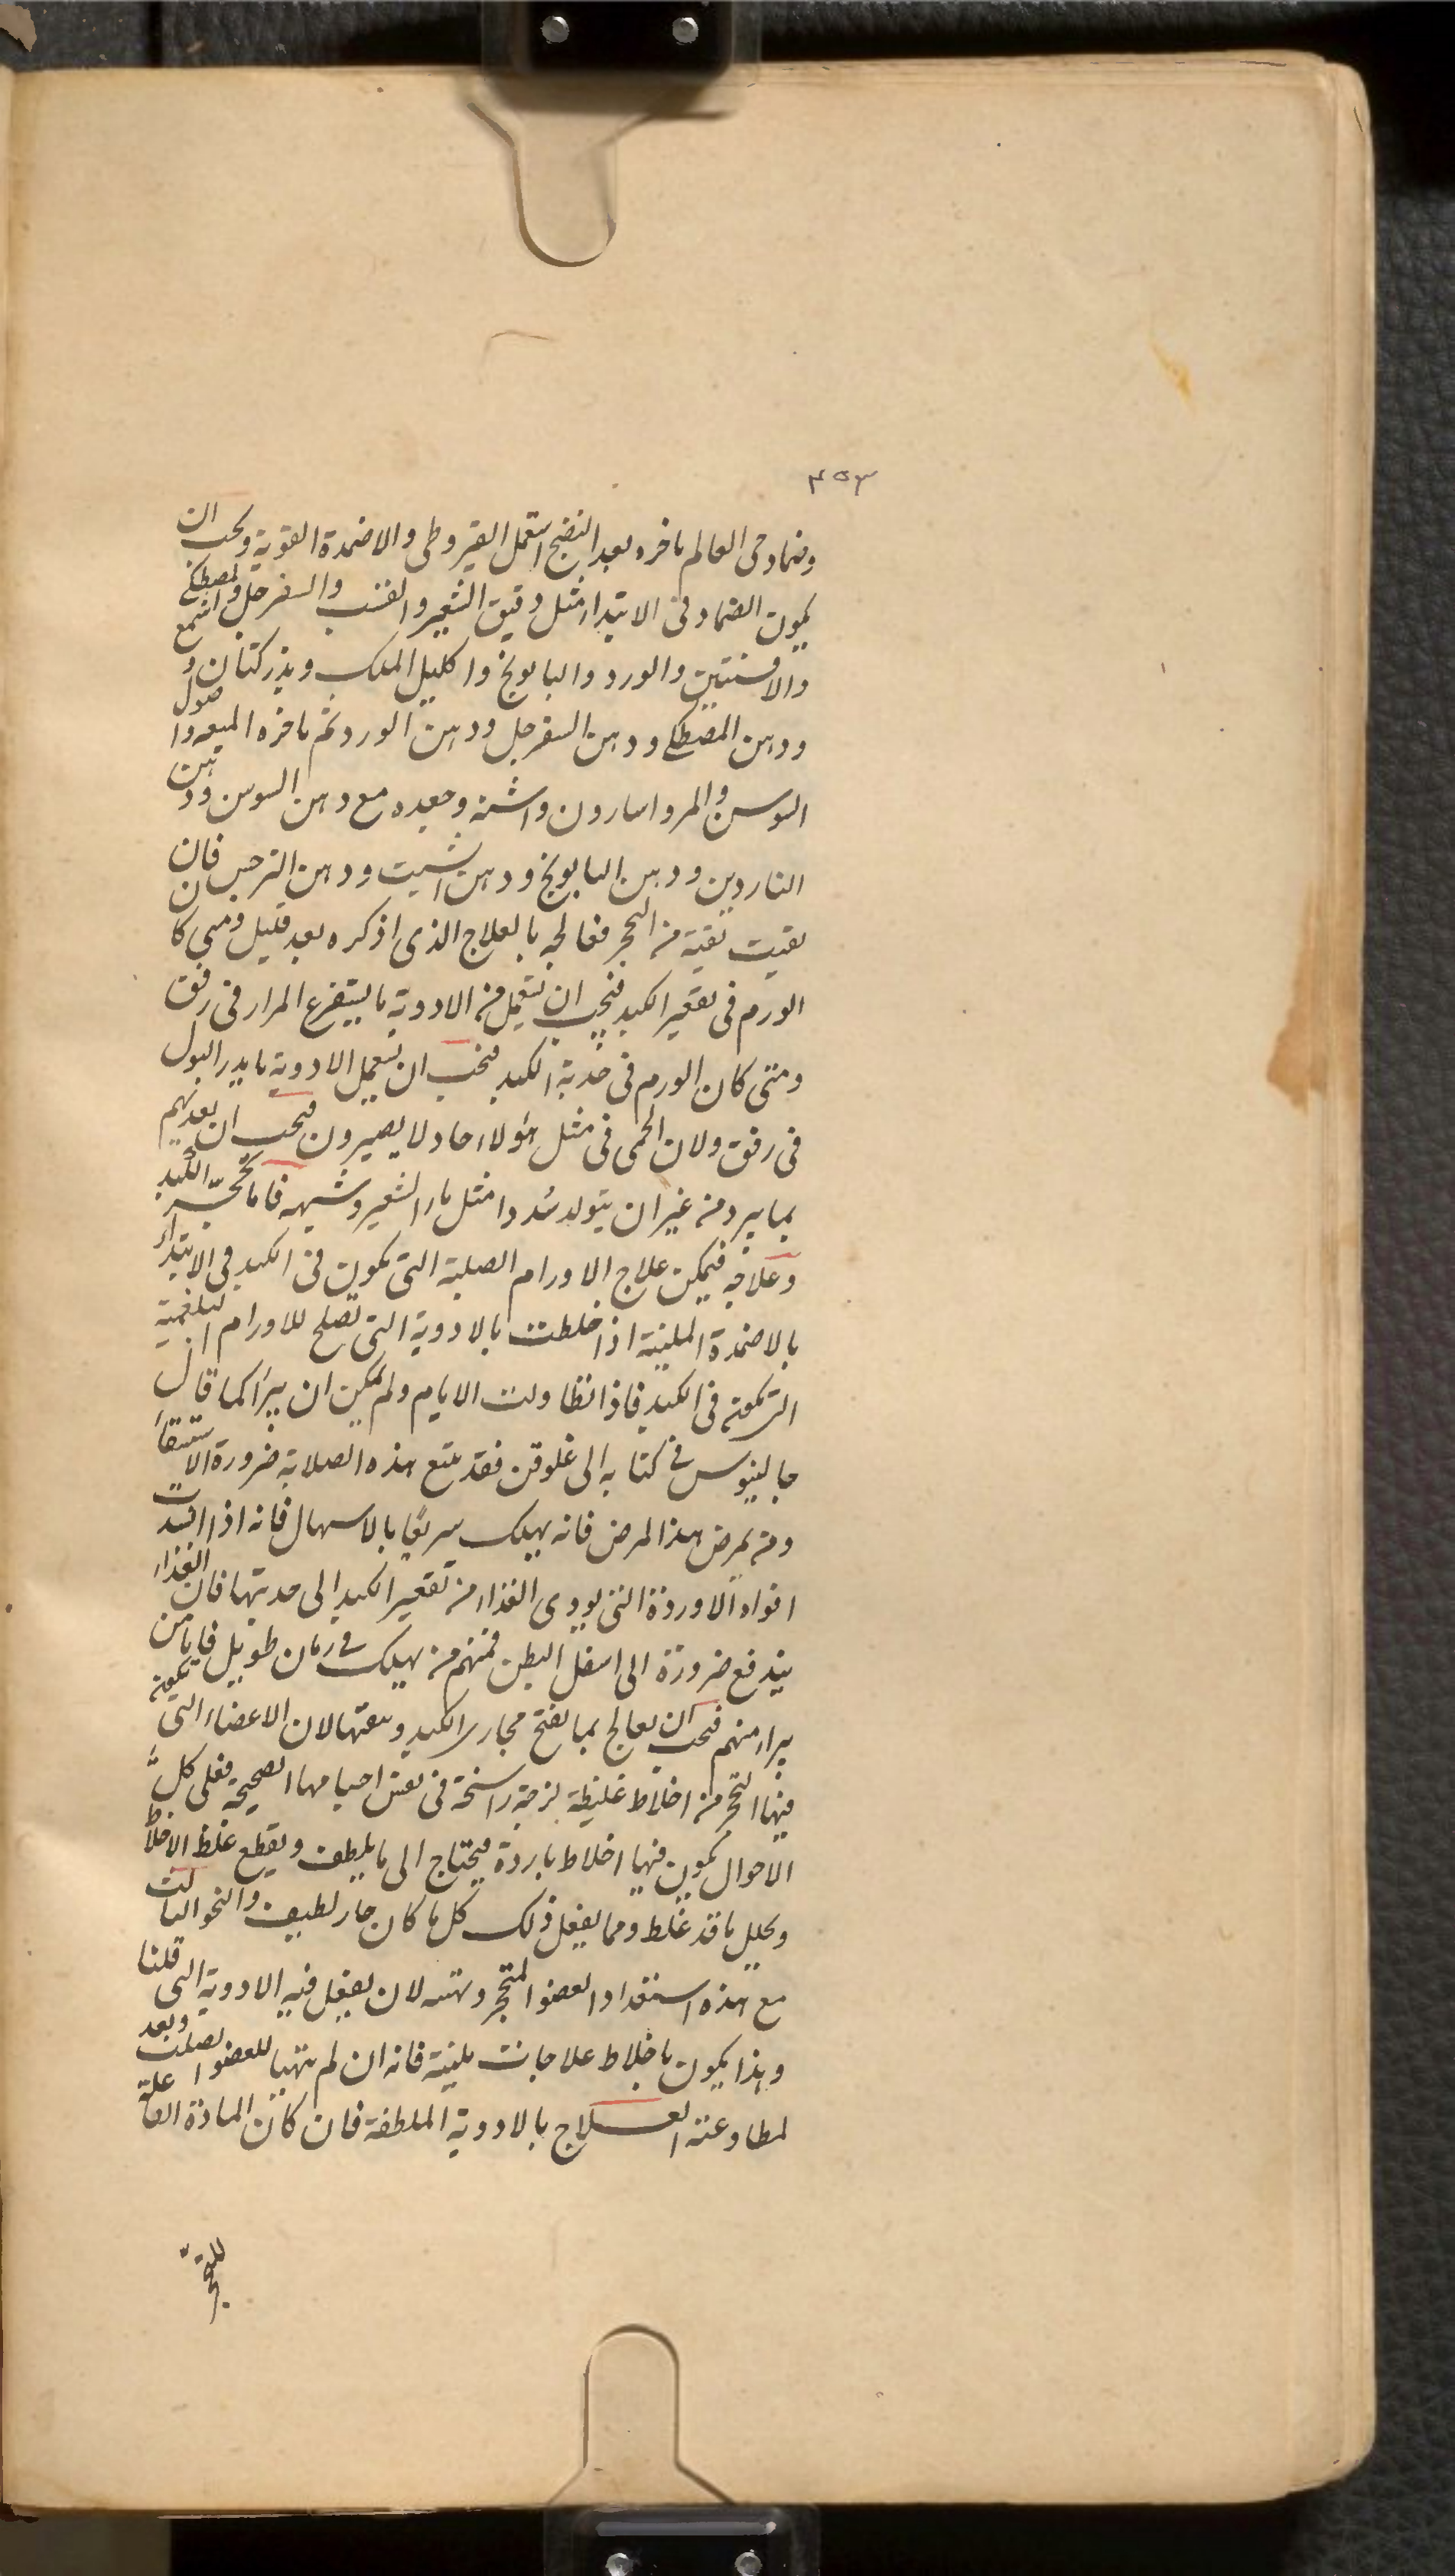 ٤٥٣
وضماد حى العالم باخره بعد النضج استعمل القيروطى والاضمدة القوية ويجب ان
يكون الضماد فى الابتداء مثل دقيق الشعير والقسب والسفرجل والمصطكى
والافسنتين والورد والبابونج واكليل الملك وبذر كتان و اشمع
ودهن المصطكى ودهن السفرجل ودهن الورد ثم باخره الميعه واصول
السوسن والمر واسارون واشنه وجعده مع دهن السوسن ودهن
الناردين ودهن البابونج ودهن الشبت ودهن النرجس فان
بقيت بقية من التحجر فعالجه بالعلاج الذى اذكره بعد قليل ومتى كان
الورم فى تقعير الكبد فيجب ان تستعمل من الادوية ما يستفرغ المرار فى رفق
ومتى كان الورم فى حدبة الكبد فيجب ان تستعمل الادوية ما يدر البول
فى رفق ولان الحمى فى مثل هؤلاء حاد لا يصبرون فيجب ان يغذيهم
بما يبرد من غير ان يتولد سددا مثل ماء الشعير وشبهه فاما تحجّر الكبد
وعلاجه فيمكن علاج الاورام الصلبة التى يكون فى الكبد فى الابتداء
بالاضمدة الملينة اذا خلطت بالادوية التى تصلح للاورام البلغمية
التى تكون فى الكبد فاذا تطاولت الايام ولم يمكن ان يبرا كما قال
جالينوس فى كتابه الى غلوقن فقد يتبع هذه الصلابة ضرورة الاستسقاء
ومن يمرض هذا المرض فانه يهلك سريعًا بالاسهال فانه اذا انسدت
افواه الاوردة التى يودى الغذاء من تقعير الكبد الى حدبتها فان الغذاء
يندفع ضرورة الى اسفل البطن فمنهم من يهلك فى زمان طويل فاما من
يبراء منهم فيجب ان يعالج بما يفتح مجارى الكبد وينقيها لان الاعضاء التى يكون
فيها التحجر من اخلاط غليظة لزجة راسخة فى نفس اجسامها الصحيحة فعلى كل
الاحوال يكون فيها اخلاط باردة فيحتاج الى ما يلطف ويقطع غلظ الاخلاط
ويحلل ما قد غلظ ومما يفعل ذلك كل ما كان حار لطيف والنحو الثالث
مع هذه استعداد العضو المتحجر وتهيئه لان يفعل فيه الادوية التى قلنا
وهذا يكون باخلاط علاجات ملينة فانه ان لم يتهيا للعضو الصلب وبعد
لمطاوعته العلاج بالادوية الملطفة فان كان المادة الفاعلة
للتحجر